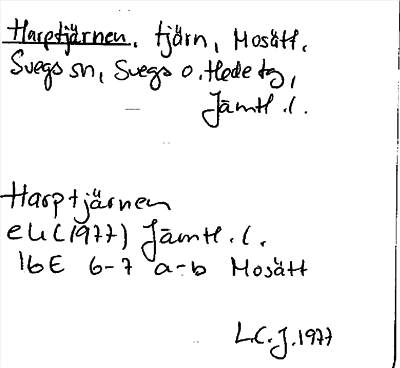 Harptjärnen, tjärn, Mosätt,
Svegs sn, Svegs o. Hede tg,
Jämtl. l.
Harptjärnen
ek (1977) Jämtl. l.
16E 6-7 a-b Mosätt
L.C.J. 1977